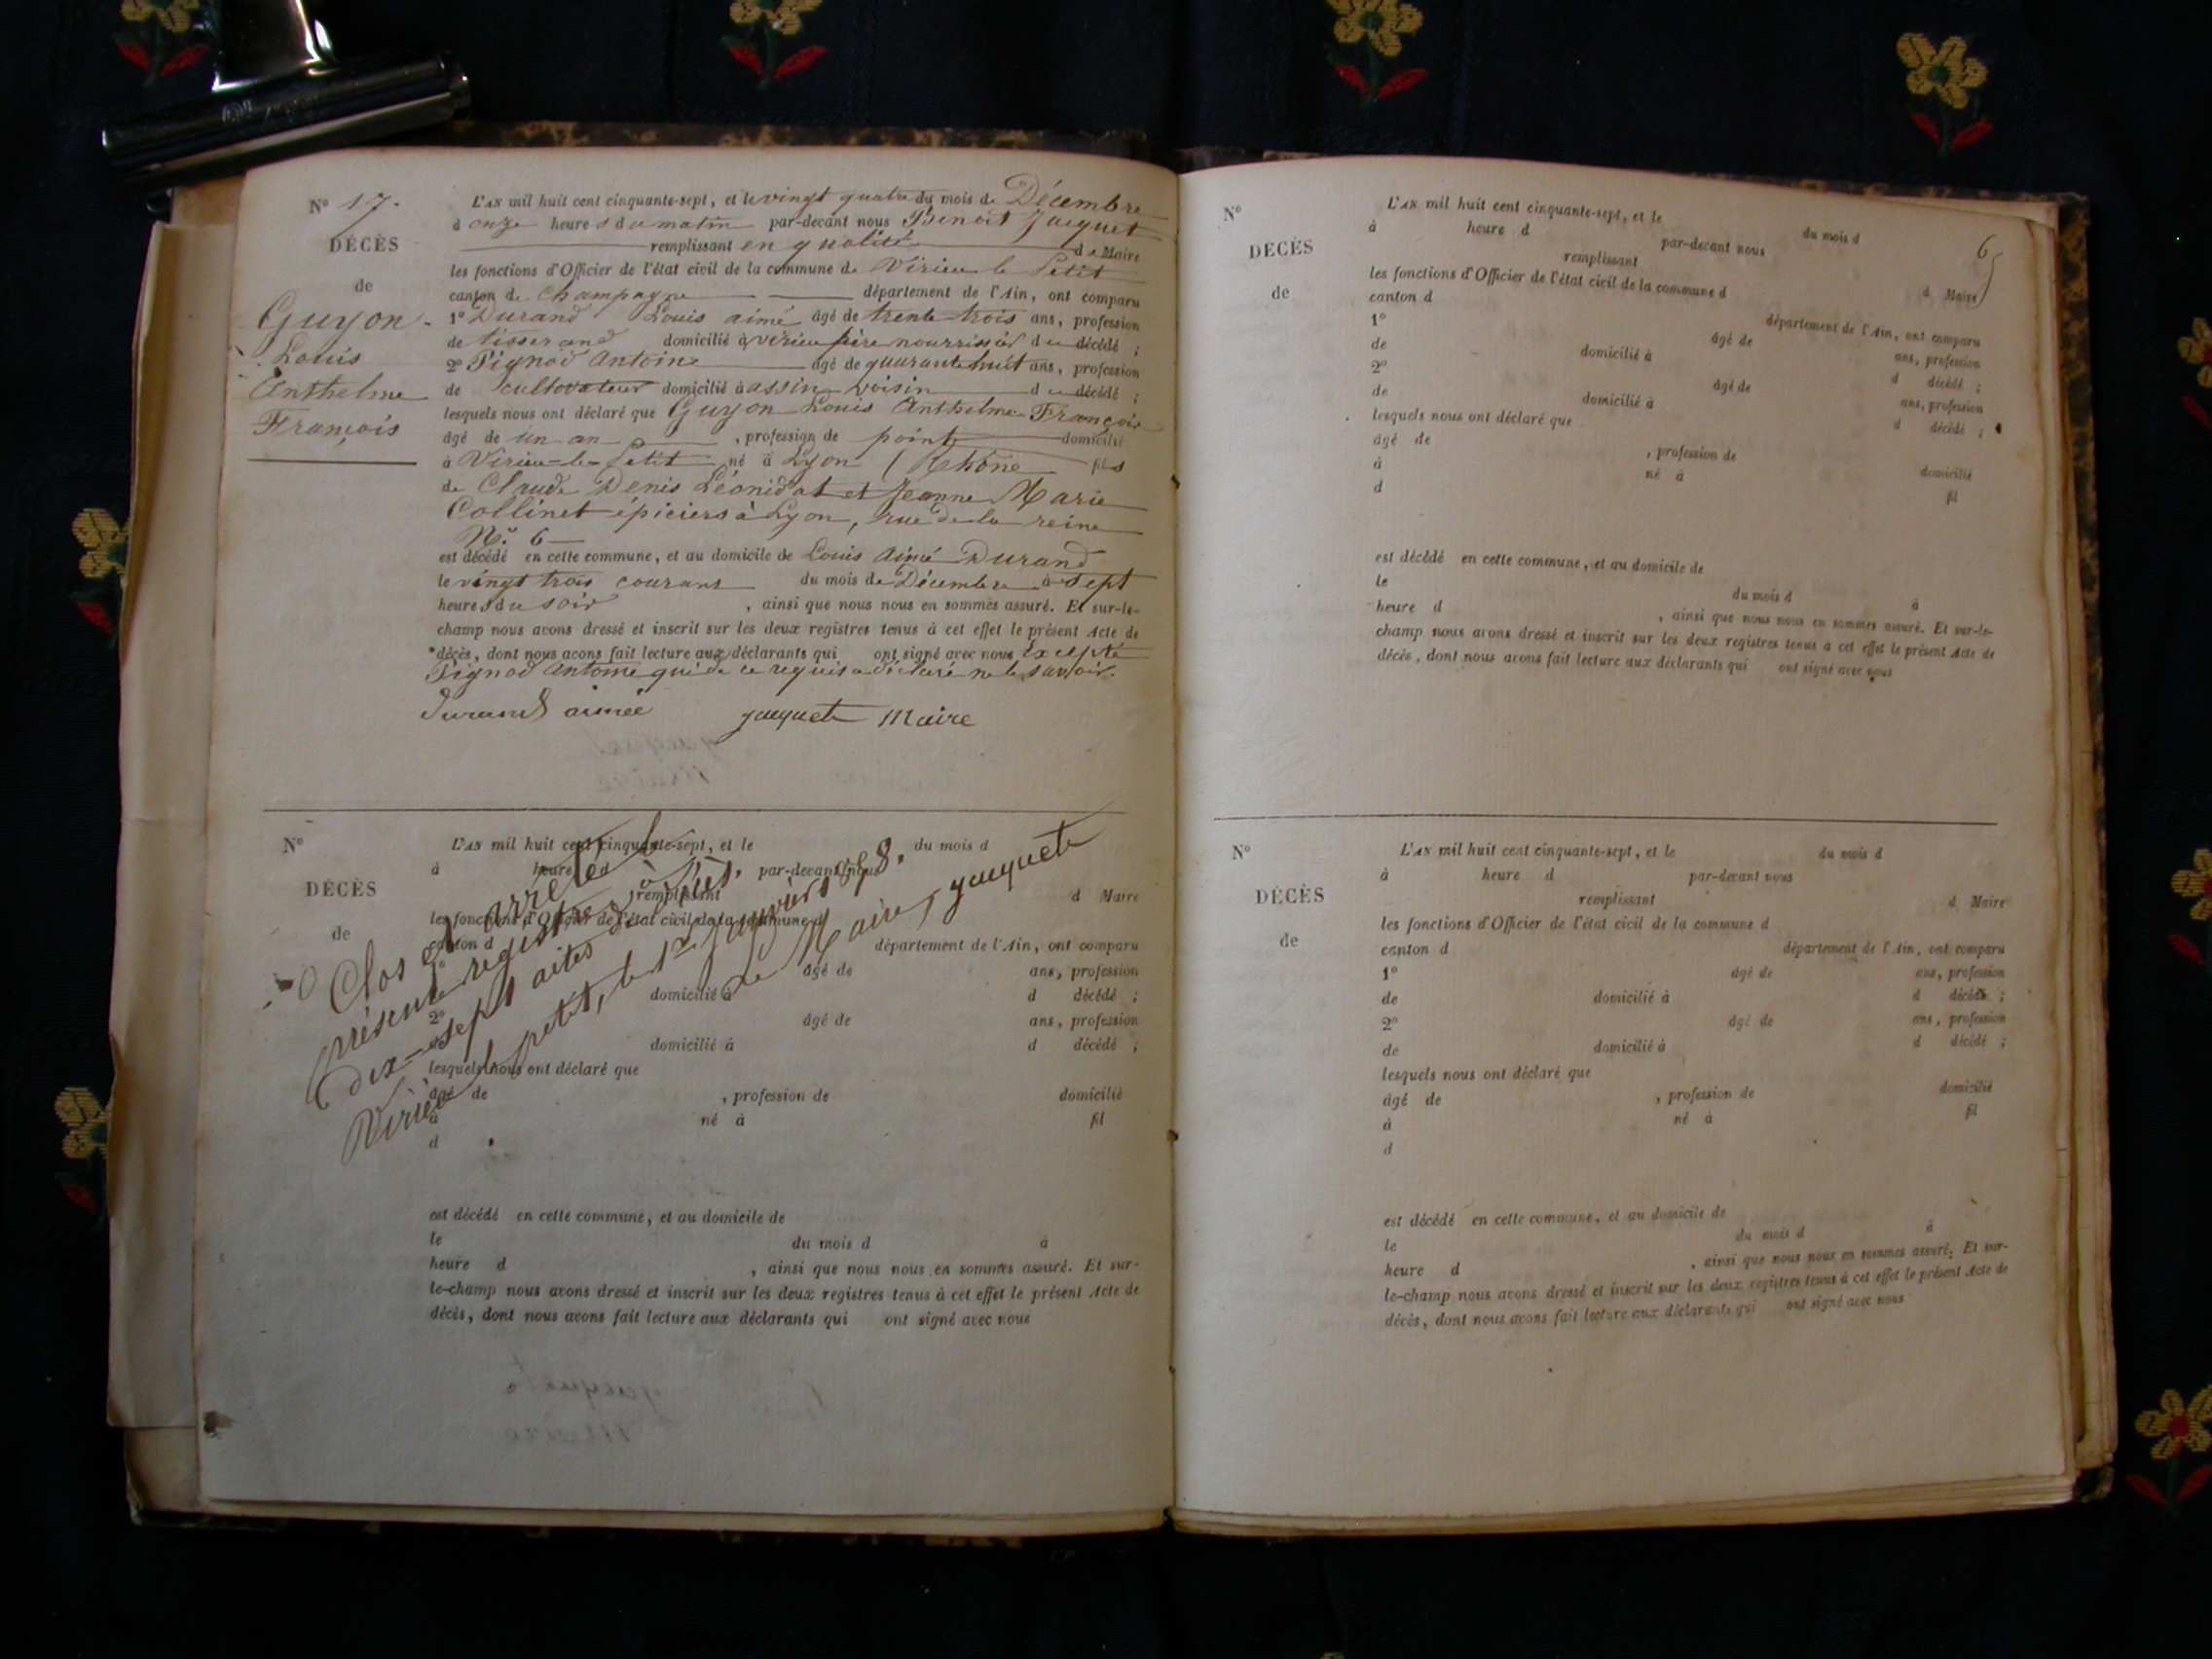 N° 17.
DÉCÈS
de
Guyon
Louis
Anthelme
François
L'AN mil huit cent cinquante-sept, et le vingt quatre du mois de Décembre
à onze heures du matin par-devant nous Benoit Jacquet
remplissant en qualité de Maire
les fonctions d'Officier de l'état civil de la commune de Virieu le Petit
canton de Champagne département de l'Ain, ont comparu
1° Durand Louis aimé âgé de trente trois ans, profession
de tisserand domicilié à virieu père nourrissier du décédé ;
2° Pignod Antoine âgé de quarante huit ans, profession
de cultivateur domicilié à assin voisin du décédé ;
lesquels nous ont déclaré que Guyon Louis Anthelme François
âgé de un an , profession de point domicilié
à Virieu-le-Petit né à Lyon ( Rhône fils
de Claude Denis Léonidat et Jeanne Marie
Collinet épiciers à Lyon, rue de la reine
N.° 6
est décédé en cette commune, et au domicile de Louis Aimé Durand
le vingt trois courant du mois de Décembre à sept
heures du soir , ainsi que nous nous en sommes assuré. Et sur-le-
champ nous avons dressé et inscrit sur les deux registres tenus à cet effet le présent Acte de
décès, dont nous avons fait lecture aux déclarants qui ont signé avec nous Excepté
Pignod Antoine qui de ce requis a déclaré ne le savoir.
Durand aimée jacquet Maire
N°
DÉCÈS
de
L'AN mil huit cent cinquante-sept, et le du mois d
à heure d par-devant nous
remplissant d Maire
les fonctions d'Officier de l'état civil de la commune d
canton d département de l'Ain, ont comparu
1° âgé de ans, profession
de domicilié à d décédé ;
2° âgé de ans, profession
de domicilié à d décédé ;
lesquels nous ont déclaré que
âgé de , profession de domicilié
à né à fil
d
Clos et arrêté le
présent registre à
dix-sept actes
Virieu petit, le 1er Janvier 1858.
Le Maire, jacquet
est décédé en cette commune, et au domicile de
le du mois d à
heure d , ainsi que nous nous en sommes assuré. Et sur-
le-champ nous avons dressé et inscrit sur les deux registres tenus à cet effet le présent Acte de
décès, dont nous avons fait lecture aux déclarants qui ont signé avec nous
6
N°
DÉCÈS
de
L'AN mil huit cent cinquante-sept, et le du mois d
à heure d par-devant nous
remplissant d Maire
les fonctions d'Officier de l'état civil de la commune d
canton d département de l'Ain, ont comparu
1° âgé de ans, profession
de domicilié à d décédé ;
2° âgé de ans, profession
de domicilié à d décédé ;
lesquels nous ont déclaré que
âgé de , profession de domicilié
à né à fil
d
est décédé en cette commune, et au domicile de
le du mois d à
heure d , ainsi que nous nous en sommes assuré. Et sur-le-
champ nous avons dressé et inscrit sur les deux registres tenus à cet effet le présent Acte de
décès, dont nous avons fait lecture aux déclarants qui ont signé avec nous
N°
DÉCÈS
de
L'AN mil huit cent cinquante-sept, et le du mois d
à heure d par-devant nous
remplissant d Maire
les fonctions d'Officier de l'état civil de la commune d
canton d département de l'Ain, ont comparu
1° âgé de ans, profession
de domicilié à d décédé ;
2° âgé de ans, profession
de domicilié à d décédé ;
lesquels nous ont déclaré que
âgé de , profession de domicilié
à né à fil
d
est décédé en cette commune, et au domicile de
le du mois d à
heure d , ainsi que nous nous en sommes assuré. Et sur-
le-champ nous avons dressé et inscrit sur les deux registres tenus à cet effet le présent Acte de
décès, dont nous avons fait lecture aux déclarants qui ont signé avec nous